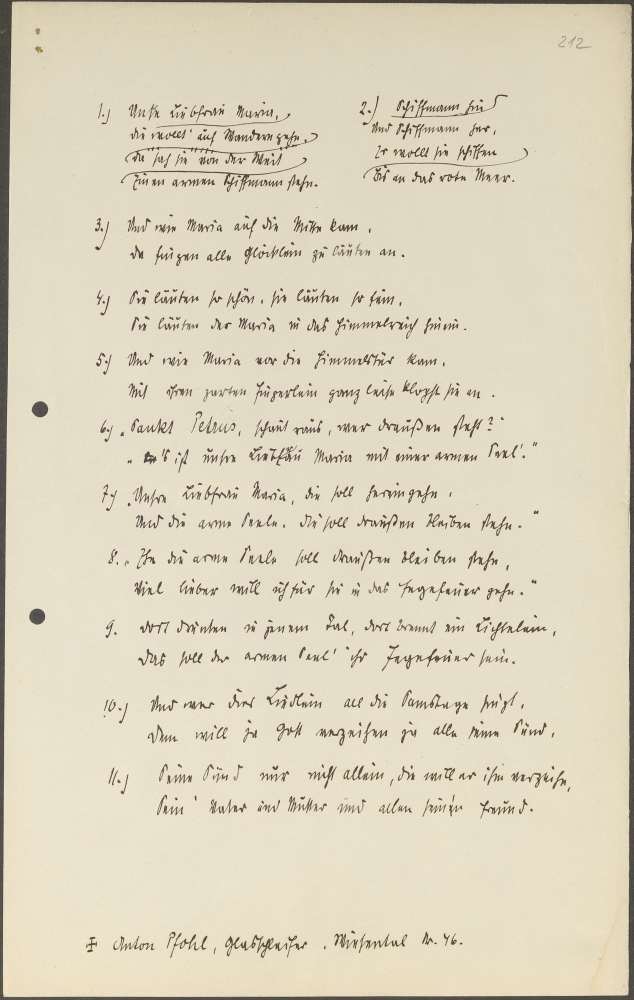 212
1.) Unsre Liebfrau Maria,
die wollt' auf Wandern gehn,
da sah sie von der Weit
einen armen Schiffmann stehn.
2.) Schiffmann hin
Und Schiffmann her,
Er wollt sie schiffen
bis an das rote Meer.
3.) Und wie Maria auf die Mitte kam,
da fingen alle Glöcklein zu läuten an.
4.) Sie läuten so schön, sie läuten so fein,
Sie läuten der Maria in das Himmelreich hinein.
5.) Und wie Maria vor die Himmelstür kam,
Mit ihren zarten Fingerlein ganz leise klopft sie an.
6.) „Sankt Petrus, schaut raus, wer draußen steht?"
„'s ist unsre Liebfrau Maria mit einer armen Seel'."
7.) „Unsre Liebfrau Maria, die soll hereingehn,
Und die arme Seele, die soll draußen bleiben stehn."
8. „Ehe die arme Seele soll draußen bleiben stehn,
Viel lieber will ich für sie in das Fegefeuer gehn."
9. Dort drunten in jenem Tal, dort brennt ein Lichtelein,
Das soll der armen Seel' ihr Fegefeuer sein.
10.) Und wer dies Liedlein all die Samstage singt,
Dem will ja Gott verzeihen ja alle seine Sünd,
11.) Seine Sünd nur nicht allein, die will er ihm verzeihn,
Sein' Vater und Mutter und allen seinen Freund.
Anton Pfohl, Glasschleifer, Wiesental Nr. 46.